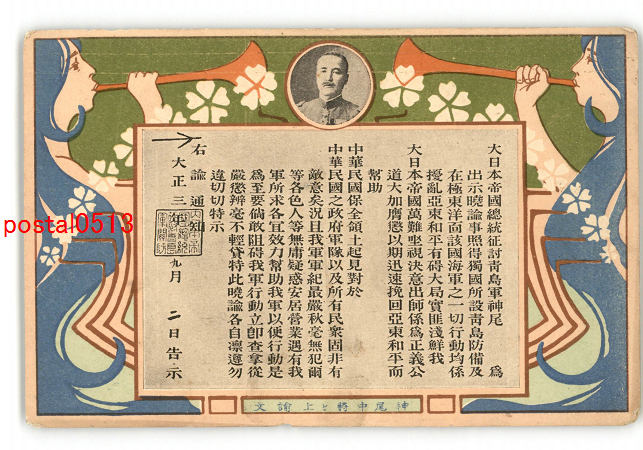 大日本帝國總統征討靑島軍神尾 爲
出示曉諭事照得獨國所設靑島防備及
在極東洋面該國海軍之一切行動均係
擾亂亞東和平有碍大局實匪淺鮮我
大日本帝國萬難堅視決意出師係爲正義公
道大加膺懲以期迅速挽回亞東和平而
幫助
中華民國保全領土起見對於
中華民國之政府軍隊以及所有民衆固非有
敵意矣況且我軍軍紀最嚴秋毫無犯爾
等各色人等無庸疑惑安居營業遇有我
軍所求各宜效力幫助我軍以便行動是
爲至要倘敢阻碍我軍行動立卽查拿從
嚴懲辦毫不輕貸特此曉諭各自凜遵勿
違切切特示
右諭通知
大正三年九月 二日告示
神尾中將と上諭文
postal0513